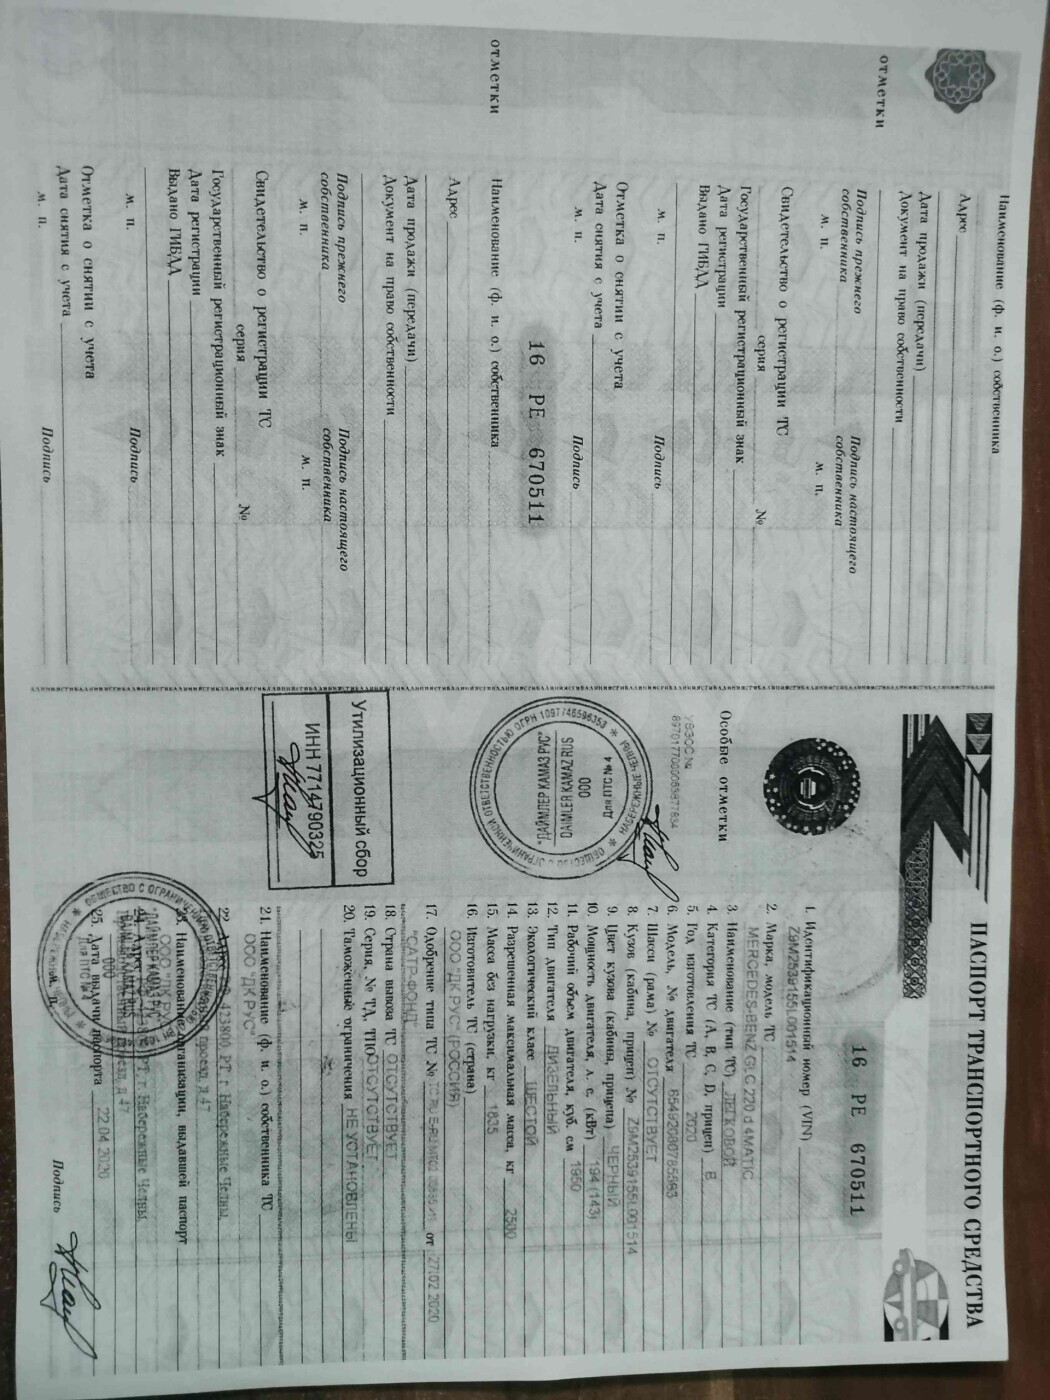 ПАСПОРТ ТРАНСПОРТНОГО СРЕДСТВА
16 РЕ 670511
1. Идентификационный номер (VIN)
Z9M2539155L001514
2. Марка, модель ТС
MERCEDES-BENZ GLC 220 d 4MATIC
3. Наименование (тип ТС) ЛЕГКОВОЙ
4. Категория ТС (A, B, C, D, прицеп) B
5. Год изготовления ТС 2020
6. Модель, № двигателя
7. Шасси (рама) № ОТСУТСТВУЕТ
8. Кузов (кабина, прицеп) № Z9M2539155L001514
9. Цвет кузова (кабины, прицепа) ЧЕРНЫЙ
10. Мощность двигателя, л. с. (кВт) 194 (143)
11. Рабочий объем двигателя, куб. см 1950
12. Тип двигателя ДИЗЕЛЬНЫЙ
13. Экологический класс ШЕСТОЙ
14. Разрешенная максимальная масса, кг 2500
15. Масса без нагрузки, кг 1835
16. Изготовитель ТС (страна)
ООО "ДК РУС" (РОССИЯ)
17. Одобрение типа ТС № от 27.02.2020
"САТР-ФОНД"
18. Страна вывоза ТС ОТСУТСТВУЕТ
19. Серия, № ТД, ТПО ОТСУТСТВУЕТ
20. Таможенные ограничения НЕ УСТАНОВЛЕНЫ
21. Наименование (ф. и. о.) собственника ТС
ООО "ДК РУС"
22. 423800, РТ, г. Набережные Челны,
проезд, д.47
23. Наименование организации, выдавшей паспорт
24. Адрес РТ, г. Набережные Челны,
д. 47
25. Дата выдачи паспорта 22.04.2020
м. п.
Подпись
Особые отметки
УВЭОС №
ОБЩЕСТВО С ОГРАНИЧЕННОЙ ОТВЕТСТВЕННОСТЬЮ ОГРН 1097746596353
НАБЕРЕЖНЫЕ ЧЕЛНЫ
"ДАЙМЛЕР КАМАЗ РУС"
DAIMLER KAMAZ RUS
ООО
Для ПТС № 4
Утилизационный сбор
ИНН 7714790325
Наименование (ф. и. о.) собственника
Адрес
Дата продажи (передачи)
Документ на право собственности
Подпись прежнего собственника
м. п.
Подпись настоящего собственника
м. п.
Свидетельство о регистрации ТС
серия №
Государственный регистрационный знак
Дата регистрации
Выдано ГИБДД
м. п. Подпись
Отметка о снятии с учета
Дата снятия с учета
м. п. Подпись
отметки
16 РЕ 670511
Наименование (ф. и. о.) собственника
Адрес
Дата продажи (передачи)
Документ на право собственности
Подпись прежнего собственника
м. п.
Подпись настоящего собственника
м. п.
Свидетельство о регистрации ТС
серия №
Государственный регистрационный знак
Дата регистрации
Выдано ГИБДД
м. п. Подпись
Отметка о снятии с учета
Дата снятия с учета
м. п. Подпись
отметки